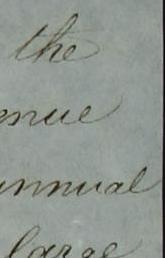 the
enue
annual
large